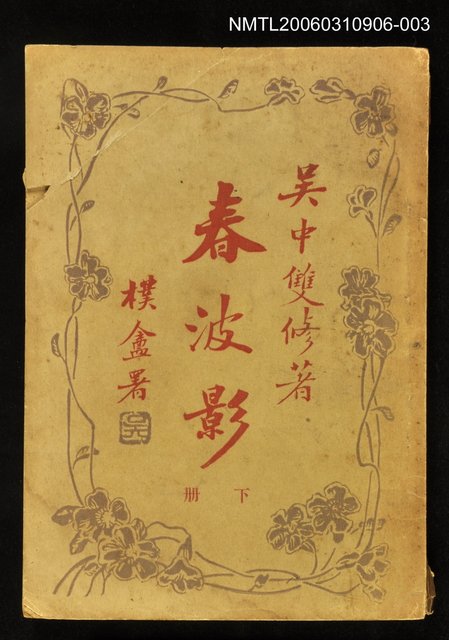 NMTL20060310906-003
吳中雙修著
春波影
下册
樸盦署